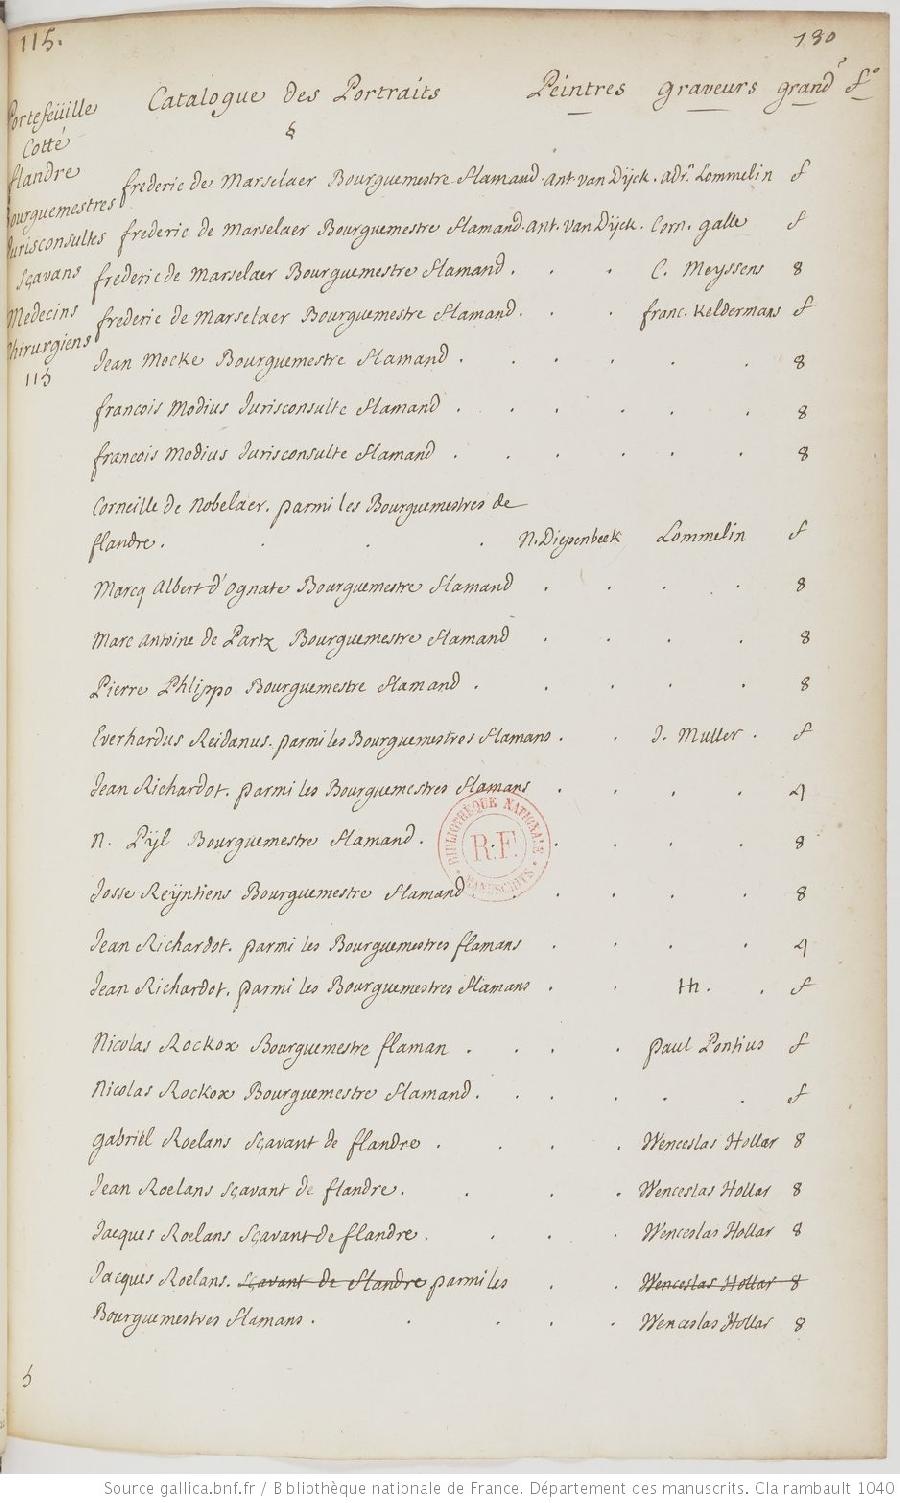 115.
130
Portefeüille
Cotté
flandre
Bourguemestres
Jurisconsultes
Sçavans
Medecins
Chirurgiens
115
Catalogue des Portraits Peintres graveurs grandr fo
§
frederic de Marselaer Bourguemestre flamand. Ant van Dijck. adr. Lommelin f
frederic de Marselaer Bourguemestre flamand. ant. van Dijck. Corn. galle f
frederic de Marselaer Bourguemestre flamand. . . C. Meyssens 8
frederic de Marselaer Bourguemestre flamand. . . franc. Keldermans f
Jean Mocke Bourguemestre flamand . . . . . . 8
francois Modius Jurisconsulte flamand . . . . . . 8
francois Modius Jurisconsulte flamand . . . . . . 8
Corneille de Nobelaer. parmi les Bourguemestres de
flandre. . . . N. Diepenbeek Lommelin f
Marcq Albert d'Ognate Bourguemestre flamand . . . . 8
Marc Antoine de Partz Bourguemestre flamand . . . . 8
Pierre Phlippo Bourguemestre flamand . . . . . 8
Everhardus Reidanus. parmi les Bourguemestres flamans . . J. Muller . f
Jean Richardot. parmi les Bourguemestres flamans . . . . 4
N. Pijl Bourguemestre flamand. . . . . . 8
Josse Reijntiens Bourguemestre flamand . . . . . 8
Jean Richardot. parmi les Bourguemestres flamans . . . . 4
Jean Richardot. parmi les Bourguemestres flamans . . H. . f
Nicolas Rockox Bourguemestre flaman . . . . paul Pontius f
Nicolas Rockox Bourguemestre flamand. . . . . . f
gabriel Roelans sçavant de flandre . . . . Wenceslas Hollar 8
Jean Roelans sçavant de flandre. . . . Wenceslas Hollar 8
Jacques Roelans sçavant de flandre. . . . Wenceslas Hollar 8
Jacques Roelans. sçavant de flandre parmi les . . Wenceslas Hollar 8
Bourguemestres flamans . . . . . Wenceslas Hollar 8
BIBLIOTHÈQUE NATIONALE
R.F.
MANUSCRITS
Source gallica.bnf.fr / Bibliothèque nationale de France. Département des manuscrits. Clairambault 1040